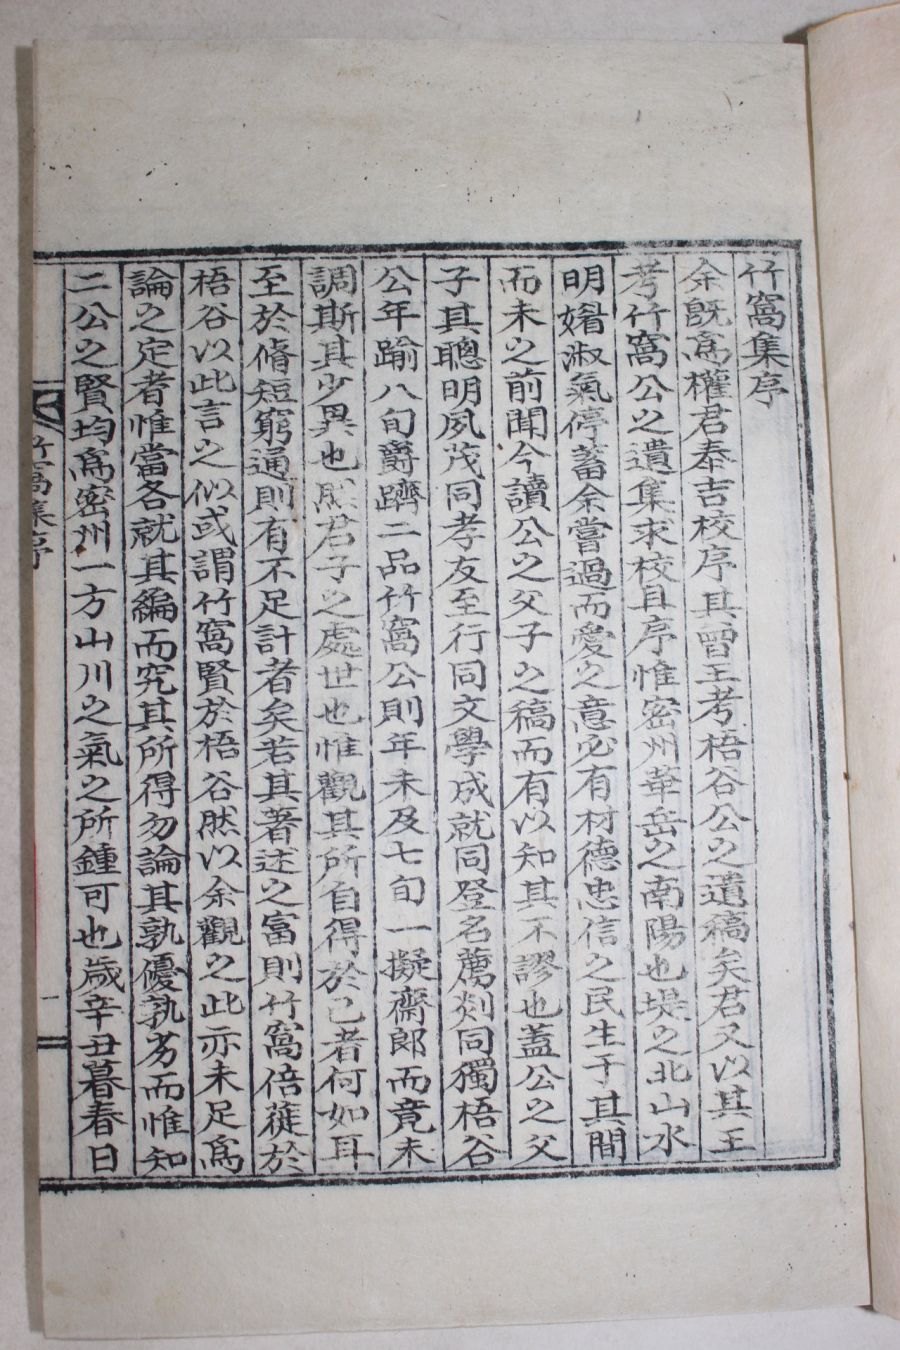 竹窩集序
余旣爲權君泰吉校序其曾王考梧谷公之遺稿矣君又以其王
考竹窩公之遺集求校且序惟密州華岳之南陽也堤之北山水
明媚淑氣停蓄余嘗過而愛之意必有材德忠信之民生于其間
而未之前聞今讀公之父子之稿而有以知其不謬也蓋公之父
子其聰明夙茂同孝友至行同文學成就同登名薦剡同獨梧谷
公年踰八旬爵躋二品竹窩公則年未及七旬一擬齋郞而竟未
調斯其少異也然君子之處世也惟觀其所自得於己者何如耳
至於脩短窮通則有不足計者矣若其著述之富則竹窩倍蓰於
梧谷以此言之似或謂竹窩賢於梧谷然以余觀之此亦未足爲
論之定者惟當各就其編而究其所得勿論其孰優孰劣而惟知
二公之賢均爲密州一方山川之氣之所鍾可也歲辛丑暮春日
竹窩集序
一